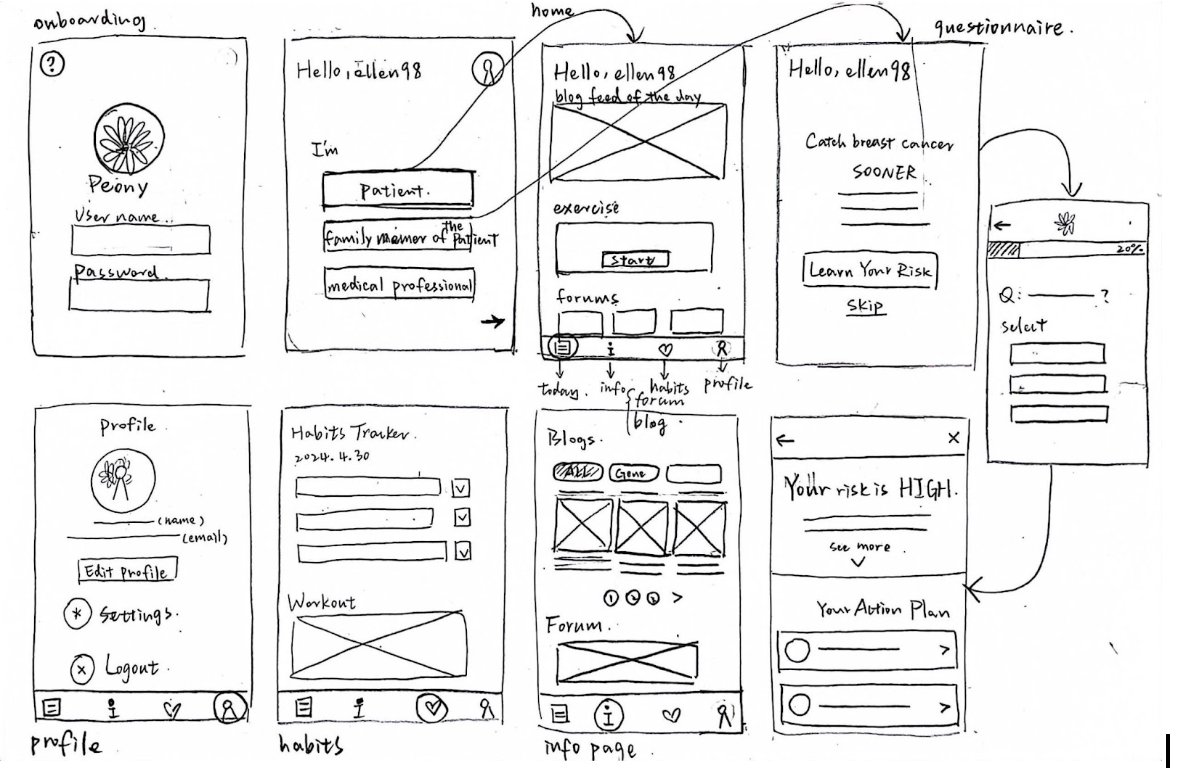 onboarding
?
Peony
User name
Password
Hello, ellen98
I'm
patient.
family memer of the patient
medical professional
home
Hello, ellen98
blog feed of the day
exercise
start
forums
i
today.
info
habits
profile
forum
blog.
questionnaire.
Hello, ellen98
Catch breast cancer
SOONER
Learn Your Risk
skip
20%
Q: ?
select
Profile
(name)
(email)
Edit Profile
Settings.
Logout.
i
profile
Habits Tracker.
2024.4.30
Workout
i
habits
Blogs.
ALL
Gene
1 2 3 >
Forum.
i
info page.
x
Your risk is HIGH.
see more
Your Action Plan
>
>